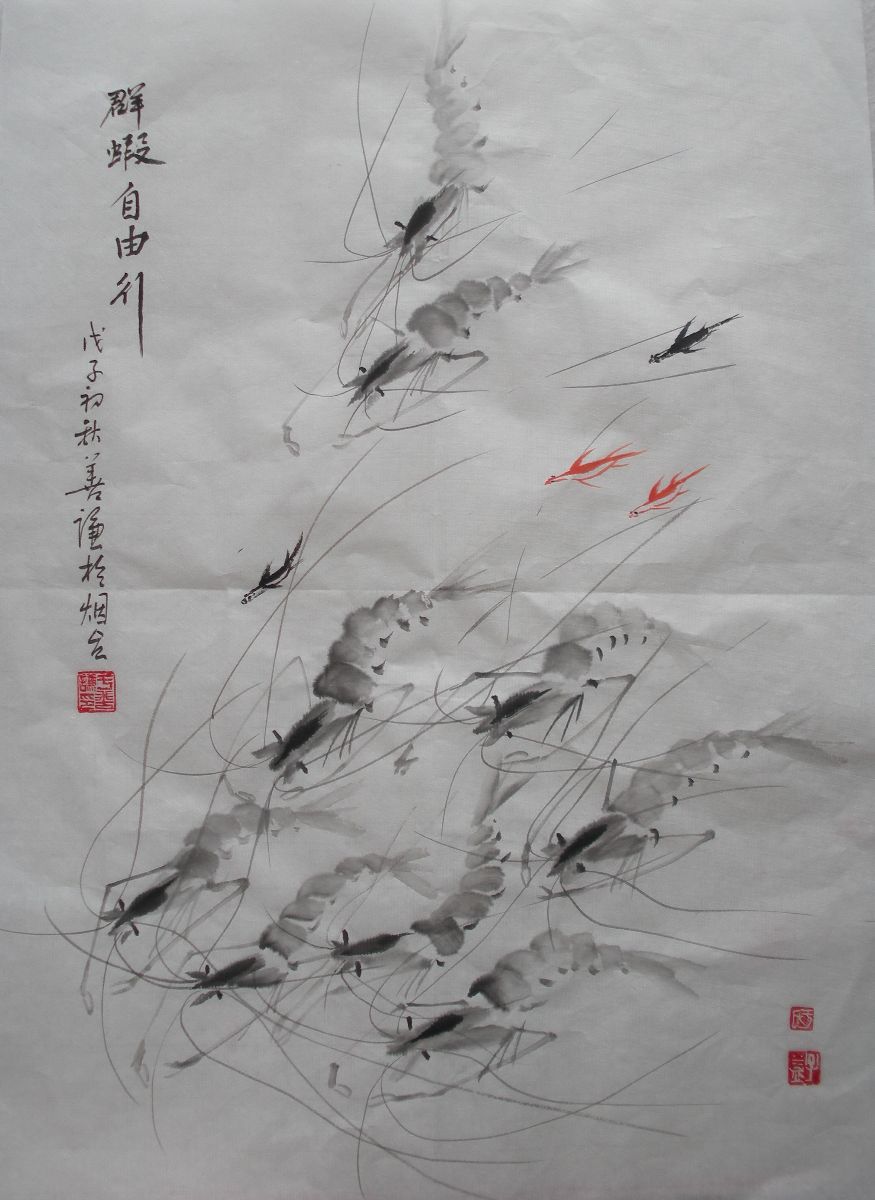 群蝦自由行
戊子初秋善谦於烟台